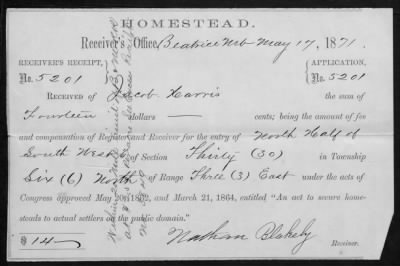 HOMESTEAD.
Receiver's Office, Beatrice Neb May 17, 1871.
RECEIVER'S RECEIPT, APPLICATION,
No. 5201 No. 5201
RECEIVED OF Jacob Harris the sum of
Fourteen dollars — cents; being the amount of fee
and compensation of Register and Receiver for the entry of North Half of
South West of Section Thirty (30) in Township
Six (6) North of Range Three (3) East under the acts of
Congress approved May 20, 1862, and March 21, 1864, entitled "An act to secure home-
steads to actual settlers on the public domain."
$14
Nathan Blakely Receiver.